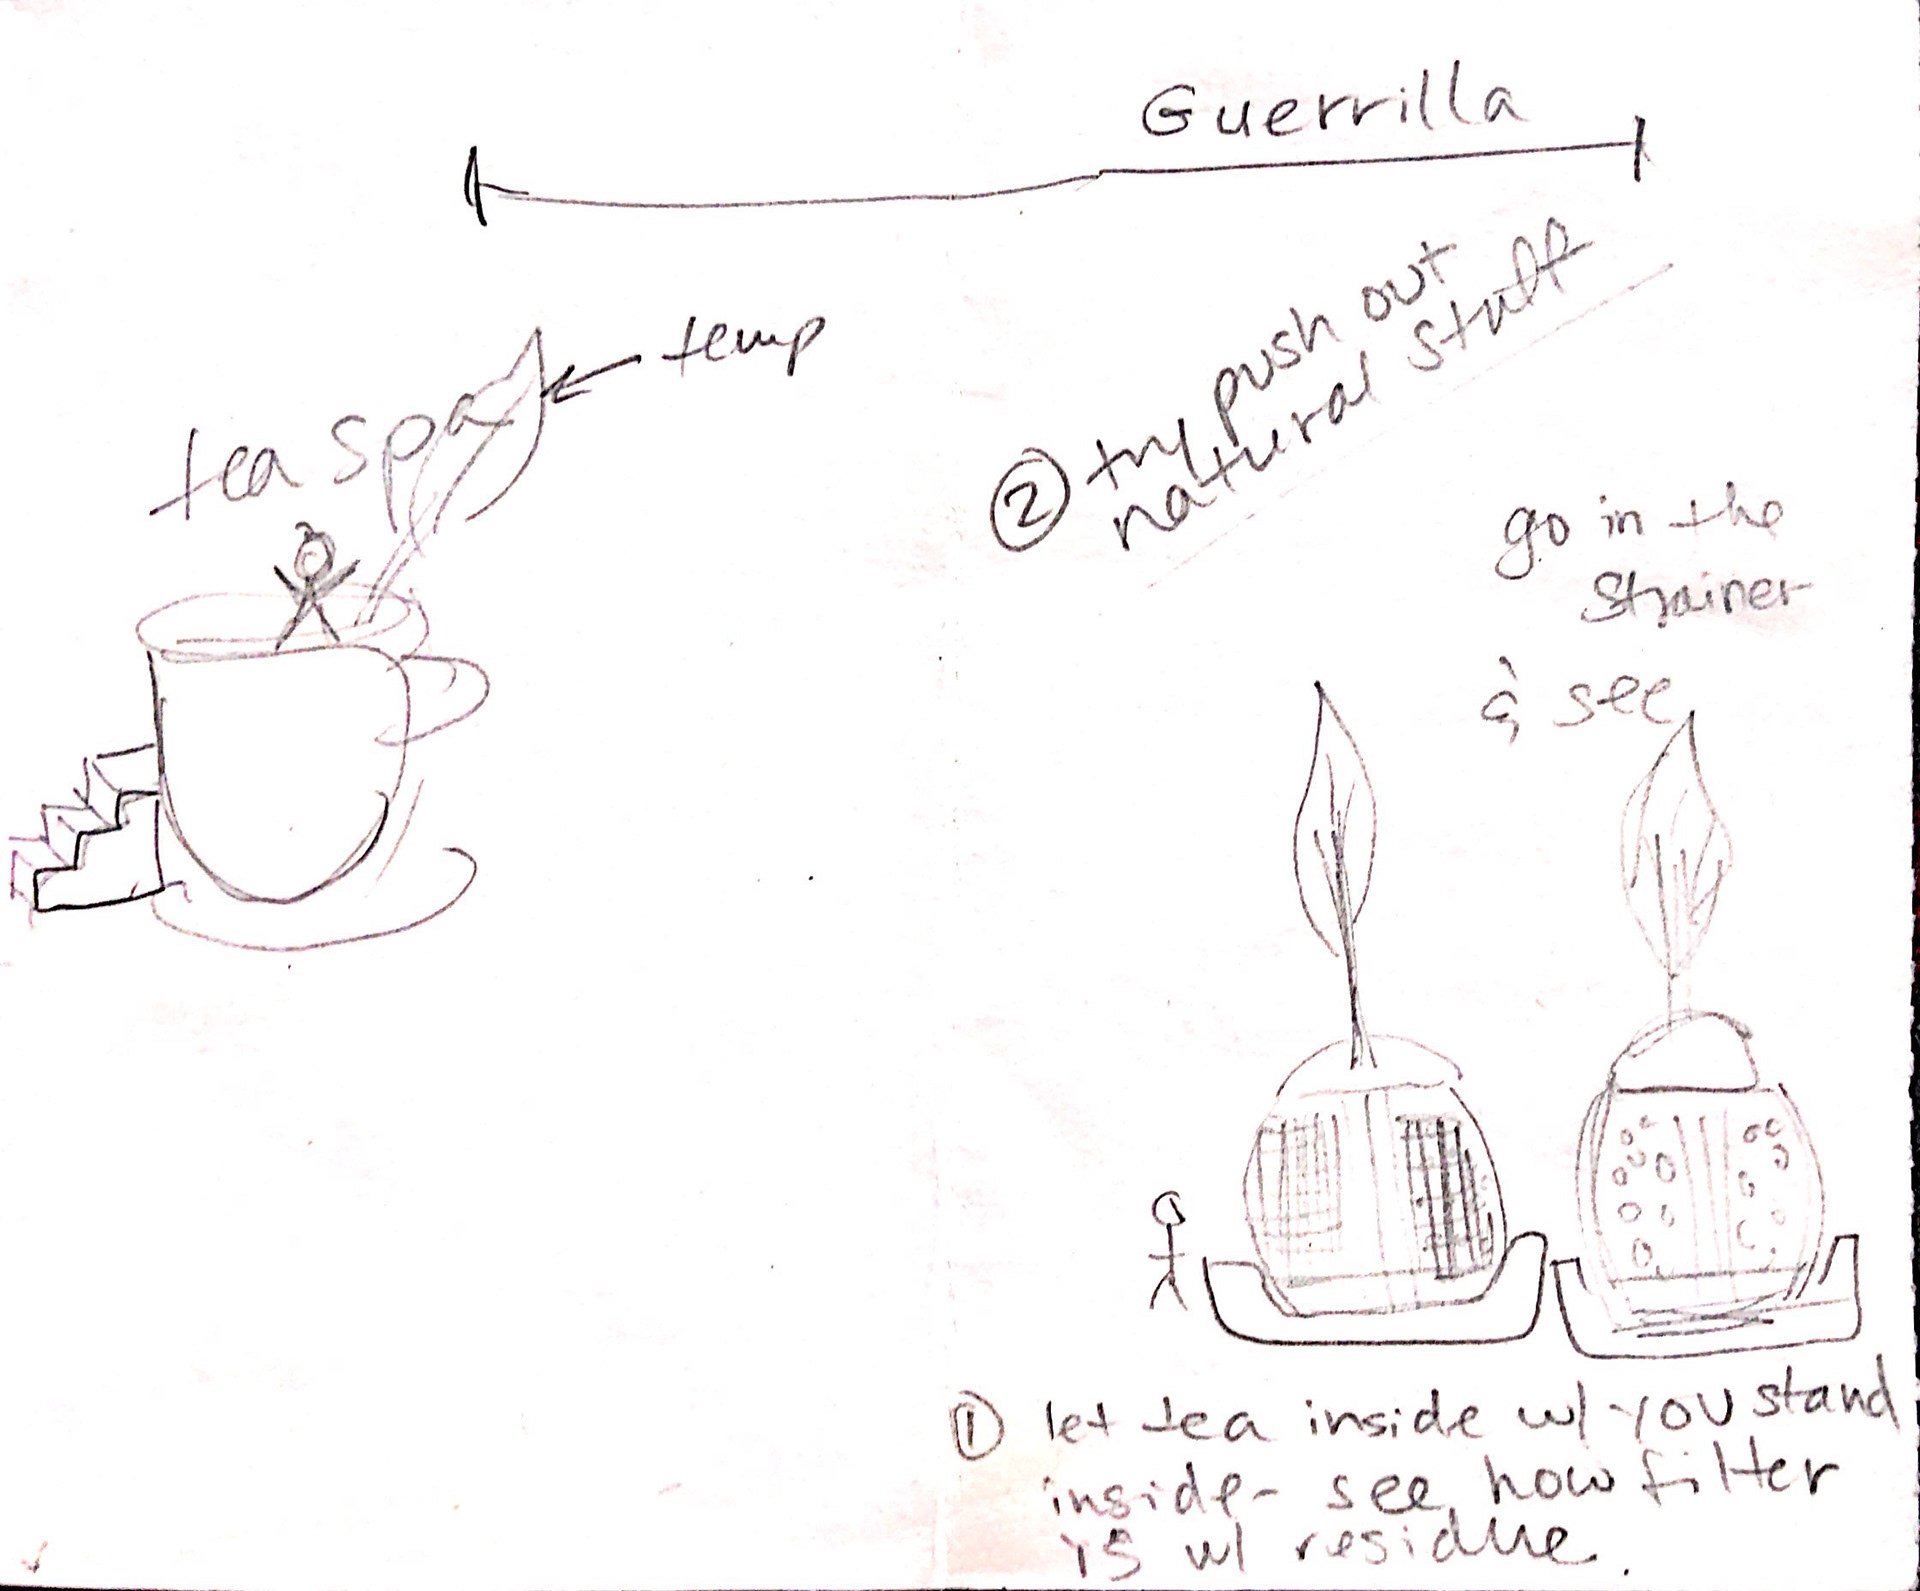 Guerrilla
temp
tea spa
② try push out
natural stuff
go in the
strainer
& see
① let tea inside w/ you stand
inside - see how filter
is w/ residue.